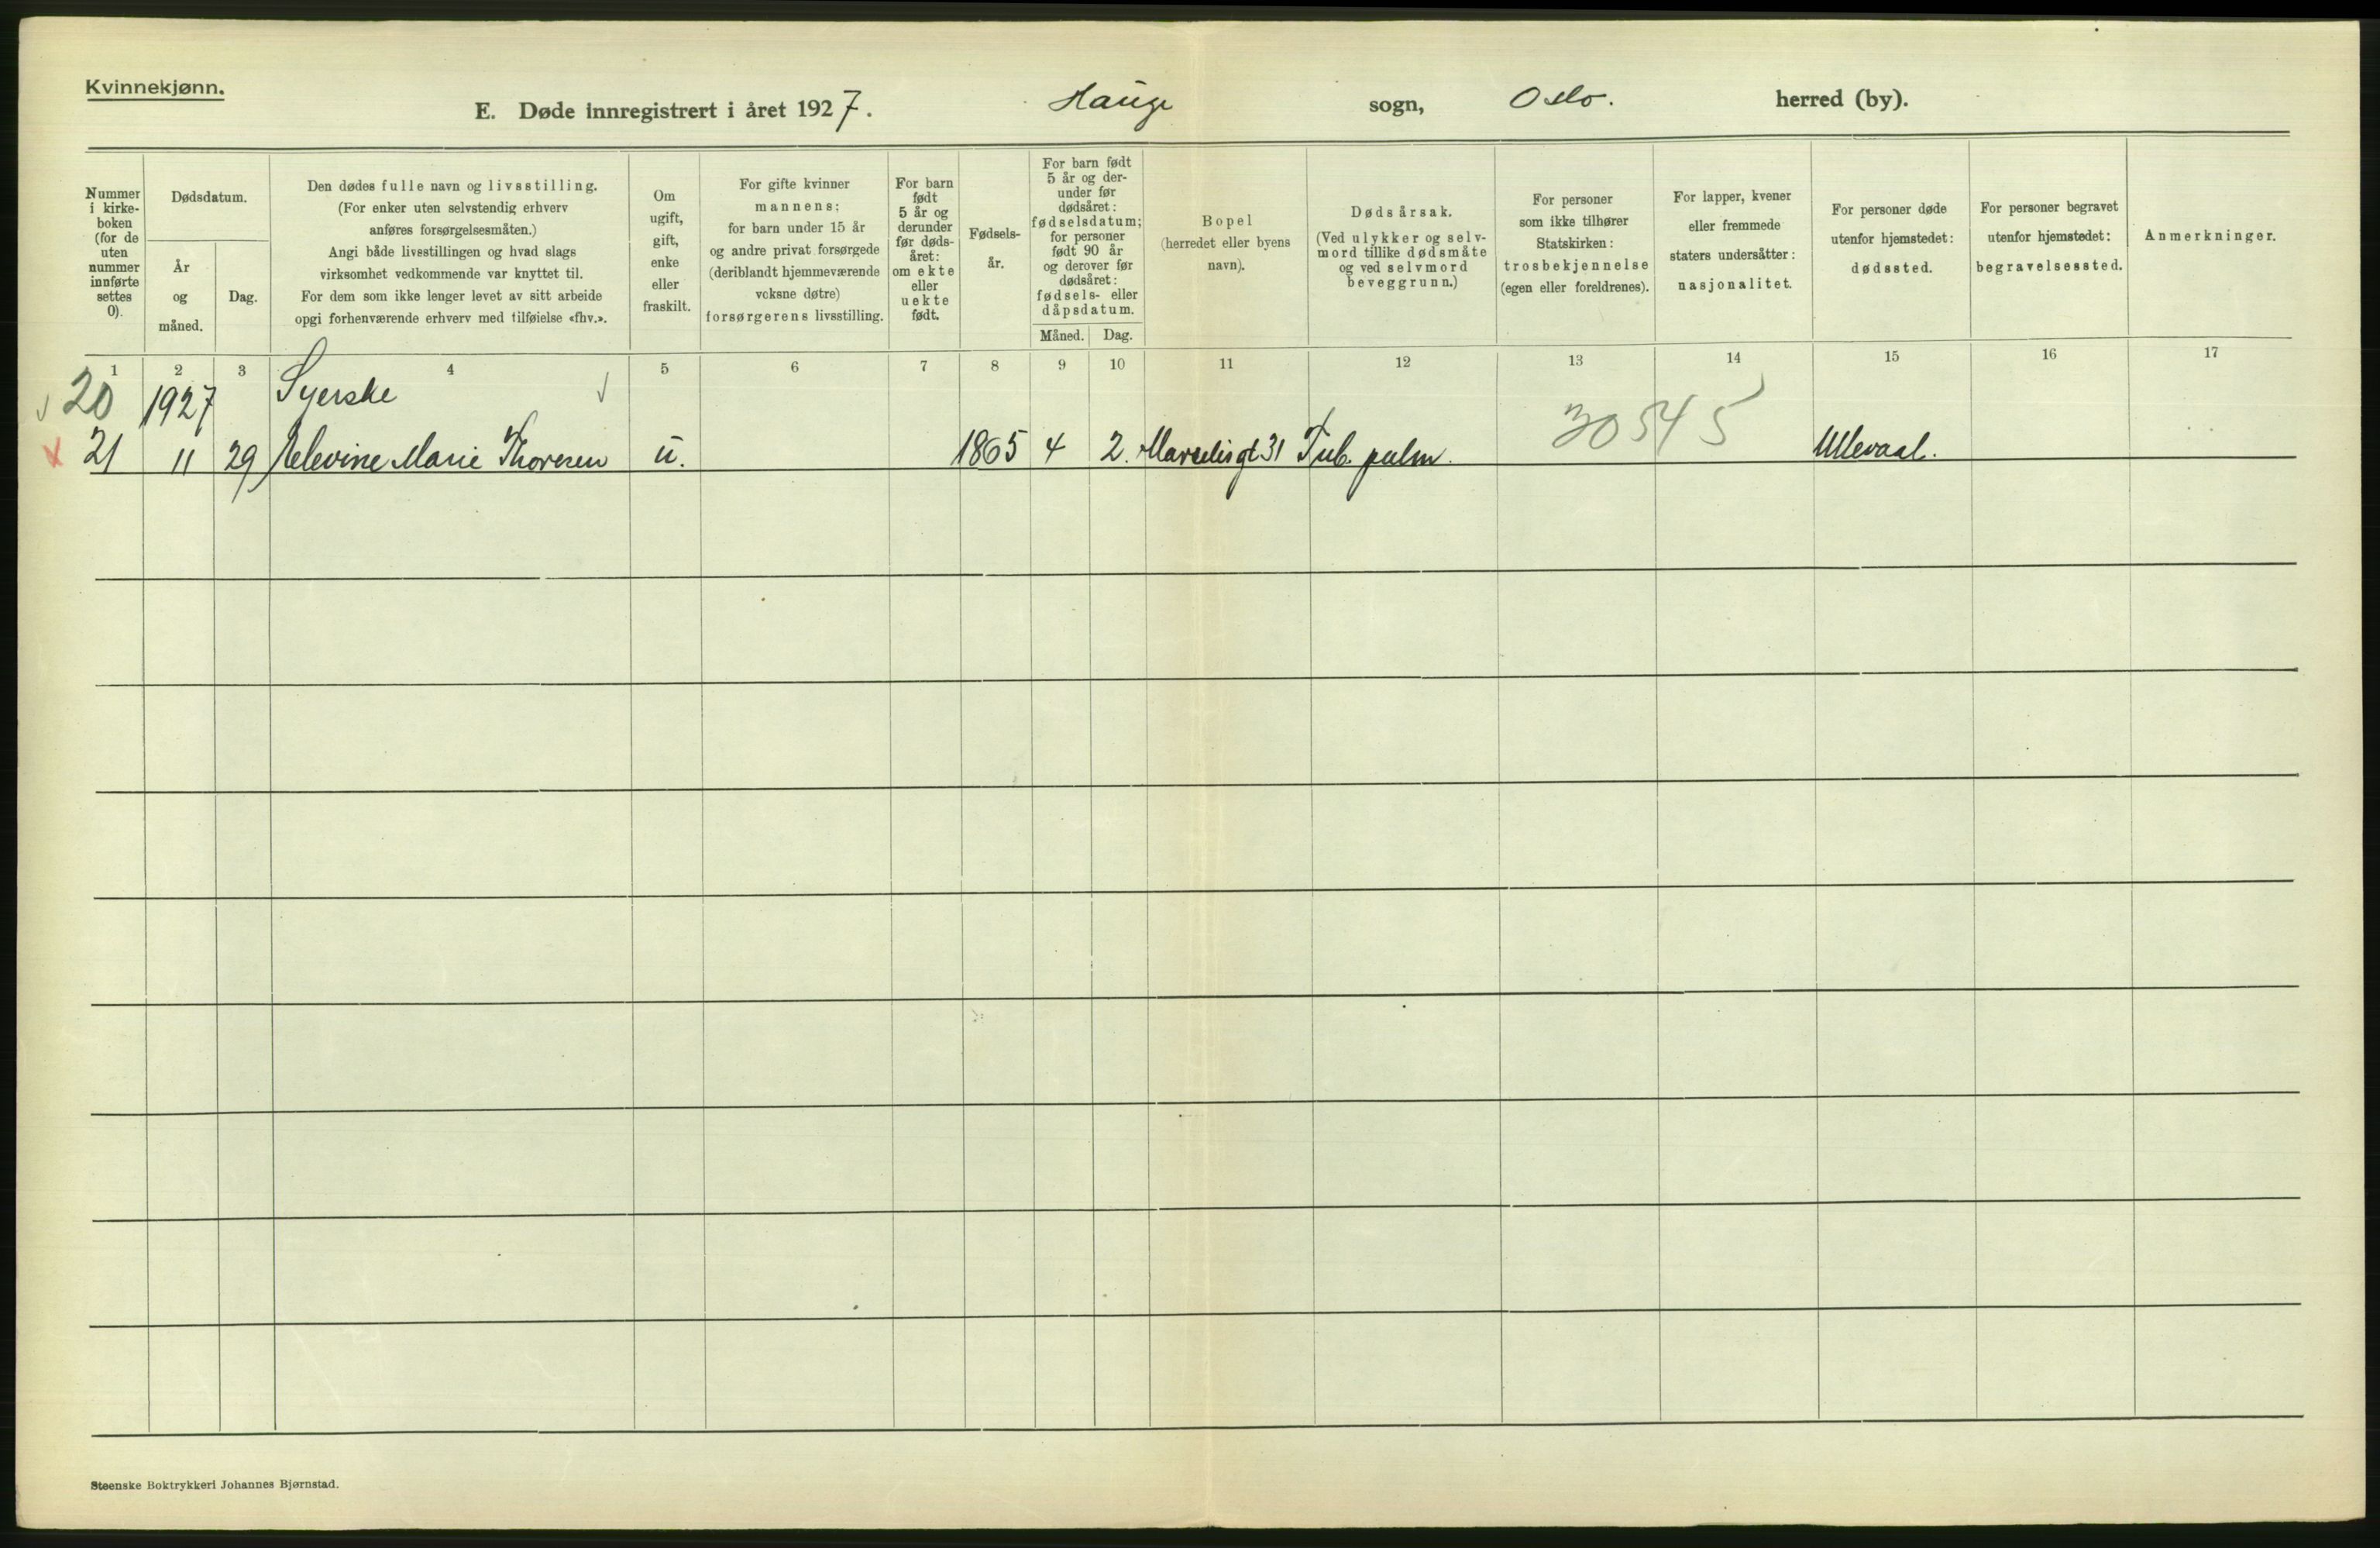 Kvinnekjønn.
E. Døde innregistrert i året 1927. Hauge sogn, Oslo. herred (by).
Nummer i kirke- boken (for de uten nummer innførte settes 0).
Dødsdatum.
År og måned.
Dag.
Den dødes fulle navn og livsstilling.
(For enker uten selvstendig erhverv
anføres forsørgelsesmåten.)
Angi både livsstillingen og hvad slags
virksomhet vedkommende var knyttet til.
For dem som ikke lenger levet av sitt arbeide
opgi forhenværende erhverv med tilføielse «fhv.».
Om
ugift,
gift,
enke
eller
fraskilt.
For gifte kvinner
mannens;
for barn under 15 år
og andre privat forsørgede
(deriblandt hjemmeværende
voksne døtre)
forsørgerens livsstilling.
For barn
født
5 år og
derunder
før døds-
året:
om ekte
eller
uekte
født.
Fødsels-
år.
For barn født
5 år og der-
under før
dødsåret:
fødselsdatum;
for personer
født 90 år
og derover før
dødsåret:
fødsels- eller
dåpsdatum.
Måned. Dag.
Bopel
(herredet eller byens
navn).
Dødsårsak.
(Ved ulykker og selv-
mord tillike dødsmåte
og ved selvmord
beveggrunn.)
For personer
som ikke tilhører
Statskirken:
trosbekjennelse
(egen eller foreldrenes).
For lapper, kvener
eller fremmede
staters undersåtter:
nasjonalitet.
For personer døde
utenfor hjemstedet:
dødssted.
For personer begravet
utenfor hjemstedet:
begravelsessted.
Anmerkninger.
1 2 3 4 5 6 7 8 9 10 11 12 13 14 15 16 17
20 1927 Syerske
21 11 29 Elevine Marie Thoresen u. 1865 4 2. Maridisgt 31 Tub. pulm. 30545 Ullevaal.
Steenske Boktrykkeri Johannes Bjørnstad.